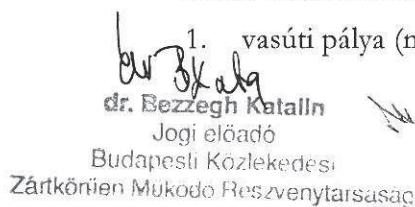 1. vasúti pálya (n
dr. Bezzegh Katalin
Jogi előadó
Budapesti Közlekedési
Zártkörűen Működő Részvénytársaság